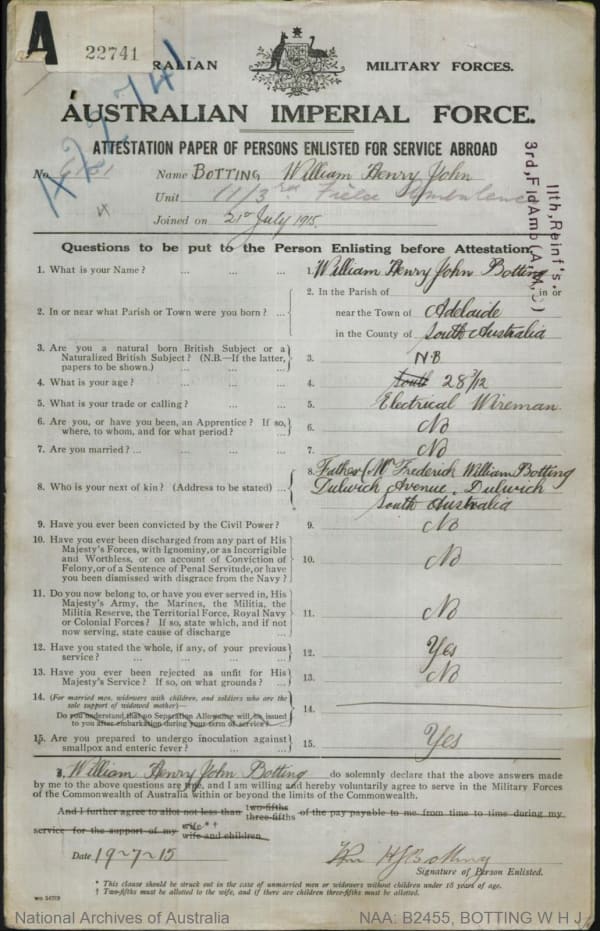 A
22741
RALIAN MILITARY FORCES.
AUSTRALIAN IMPERIAL FORCE.
ATTESTATION PAPER OF PERSONS ENLISTED FOR SERVICE ABROAD
No. Name BOTTING William Henry John
Unit 11/3rd Field Ambulance
Joined on 21st July 1915.
11th, Reinf's.
3rd, Fld Amb (A,M,C)
Questions to be put to the Person Enlisting before Attestation.
1. What is your Name? ... ... ... 1. William Henry John Botting
2. In or near what Parish or Town were you born? ... 2. In the Parish of in or
near the Town of Adelaide
in the County of South Australia
3. Are you a natural born British Subject or a
Naturalized British Subject? (N.B.—If the latter,
papers to be shown.) ... ... ... 3. N.B
4. What is your age? ... ... ... 4. South 28 3/12
5. What is your trade or calling? ... ... 5. Electrical Wireman
6. Are you, or have you been, an Apprentice? If so,
where, to whom, and for what period? ... ... 6. No
7. Are you married? ... ... ... ... 7. No
8. Who is your next of kin? (Address to be stated) ... 8. Father (Mr Frederick William Botting
Dulwich Avenue, Dulwich
South Australia
9. Have you ever been convicted by the Civil Power? 9. No
10. Have you ever been discharged from any part of His
Majesty's Forces, with Ignominy, or as Incorrigible
and Worthless, or on account of Conviction of
Felony, or of a Sentence of Penal Servitude, or have
you been dismissed with disgrace from the Navy? 10. No
11. Do you now belong to, or have you ever served in, His
Majesty's Army, the Marines, the Militia, the
Militia Reserve, the Territorial Force, Royal Navy
or Colonial Forces? If so, state which, and if not
now serving, state cause of discharge 11. No
12. Have you stated the whole, if any, of your previous
service? ... ... ... ... 12. Yes
13. Have you ever been rejected as unfit for His
Majesty's Service? If so, on what grounds? ... 13. No
14. (For married men, widowers with children, and soldiers who are the
sole support of widowed mother)—
Do you understand that no Separation Allowance will be issued
to you after embarkation during your term of service? 14.
15. Are you prepared to undergo inoculation against
smallpox and enteric fever? ... ... 15. Yes
I, William Henry John Botting do solemnly declare that the above answers made
by me to the above questions are true, and I am willing and hereby voluntarily agree to serve in the Military Forces
of the Commonwealth of Australia within or beyond the limits of the Commonwealth.
And I further agree to allot not less than two-fifths three-fifths of the pay payable to me from time to time during my
service for the support of my wife*† wife and children.
Date 19-7-15 Wm HJ Botting
Signature of Person Enlisted.
* This clause should be struck out in the case of unmarried men or widowers without children under 18 years of age.
† Two-fifths must be allotted to the wife, and if there are children three-fifths must be allotted.
National Archives of Australia NAA: B2455, BOTTING W H J